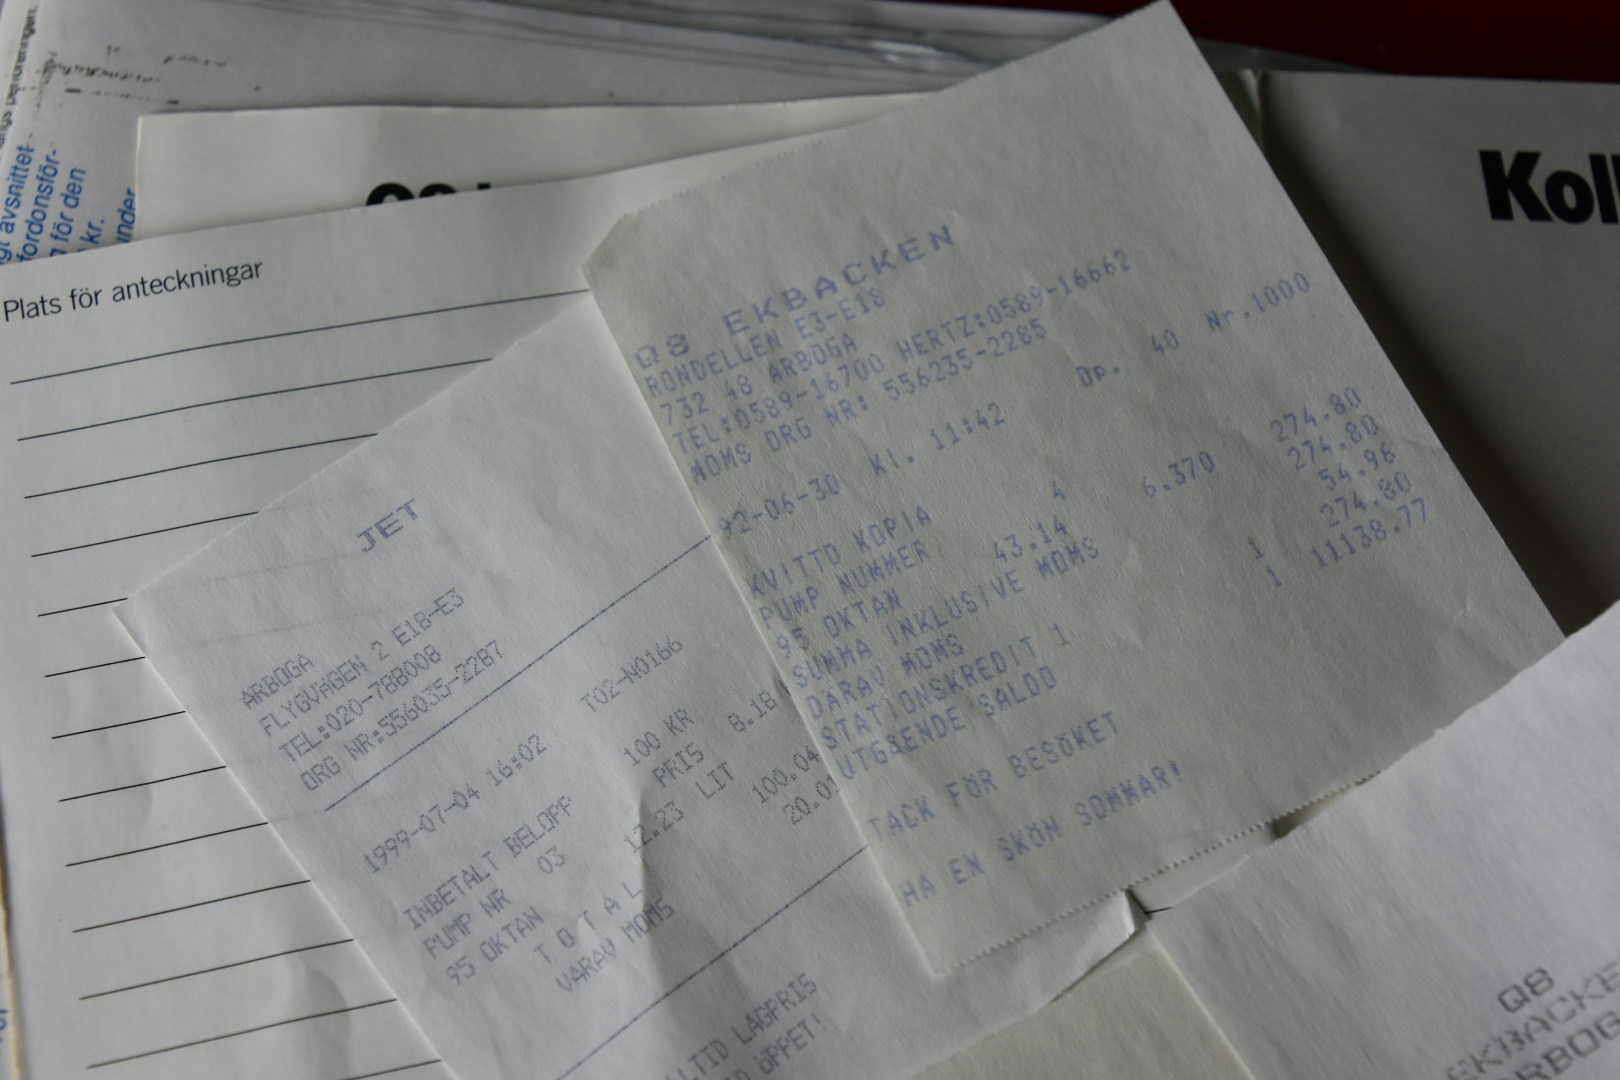 avsnittet
fordonsför-
för den
kr.
Plats för anteckningar
Koll
Q8 EKBACKEN
RONDELLEN E3-E18
732 48 ARBOGA
TEL:0589-16700 HERTZ:0589-16662
MOMS ORG NR: 556235-2285
92-06-30 Kl. 11:42 Dp. 40 Nr.1000
KVITTO KOPIA
PUMP NUMMER 4
95 OKTAN 43.14 6.370 274.80
SUMMA INKLUSIVE MOMS 274.80
DARAV MOMS 54.96
STATIONSKREDIT 1 1 274.80
UTGÅENDE SALDO 1 11138.77
TACK FÖR BESÖKET
HA EN SKÖN SOMMAR!
JET
ARBOGA
FLYGVÄGEN 2 E18-E3
TEL:020-788008
ORG NR:556035-2287
1999-07-04 16:02 T02-N0166
INBETALT BELOPP 100 KR
PUMP NR 03 PRIS 8.18
95 OKTAN 12.23 LIT
T O T A L 100.04
VARAV MOMS 20.01
LLTID LÅGPRIS
ÖPPET!
Q8
EKBACKE
RBOG